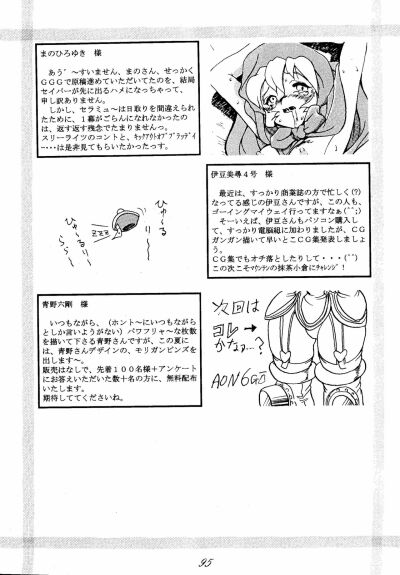 まのひろゆき　様
あう゛～すいません、まのさん、せっかく
ＧＧＧで原稿進めていただいてたのを、結局
セイバーが先に出るハメになっちゃって、
申し訳ありません。
しかし、セラミュ～は日取りを間違えられ
たために、１幕がごらんになれなかったの
は、返す返す残念でたまりませんっ。
スリーライツのコントと、ｷｯｸｱｳﾄｵﾌﾞｱｯﾃﾞｲ
～・・・は是非見てもらいたかったっす。
伊豆美尋４号　様
最近は、すっかり商業誌の方で忙しく(?)
なってる感じの伊豆さんですが、この人も、
ゴーイングマイウェイ行ってますなぁ(^^;)
そーいえば、伊豆さんもパソコン購入し
て、すっかり電脳組に加わりましたが、ＣＧ
ガンガン描いて早いとこＣＧ集発表しましょ
う。
ＣＧ集でもオチ落としたりして・・・(^^)
この次こそﾏｳﾝﾃﾝの抹茶小倉にﾁｬﾚﾝｼﾞ！
ひゅ～
ひゅーるり～
り～
らら～
zzz
青野六剛　様
いつもながら、（ホント～にいつもながら
としか言いようがない）パワフリャ～な枚数
を描いて下さる青野さんですが、この夏に
は、青野さんデザインの、モリガンピンズを
出します～。
販売はなしで、先着１００名様＋アンケート
にお答えいただいた数十名の方に、無料配布
いたします。
期待しててくださいね。
次回は
コレ→
かなァ…?
95